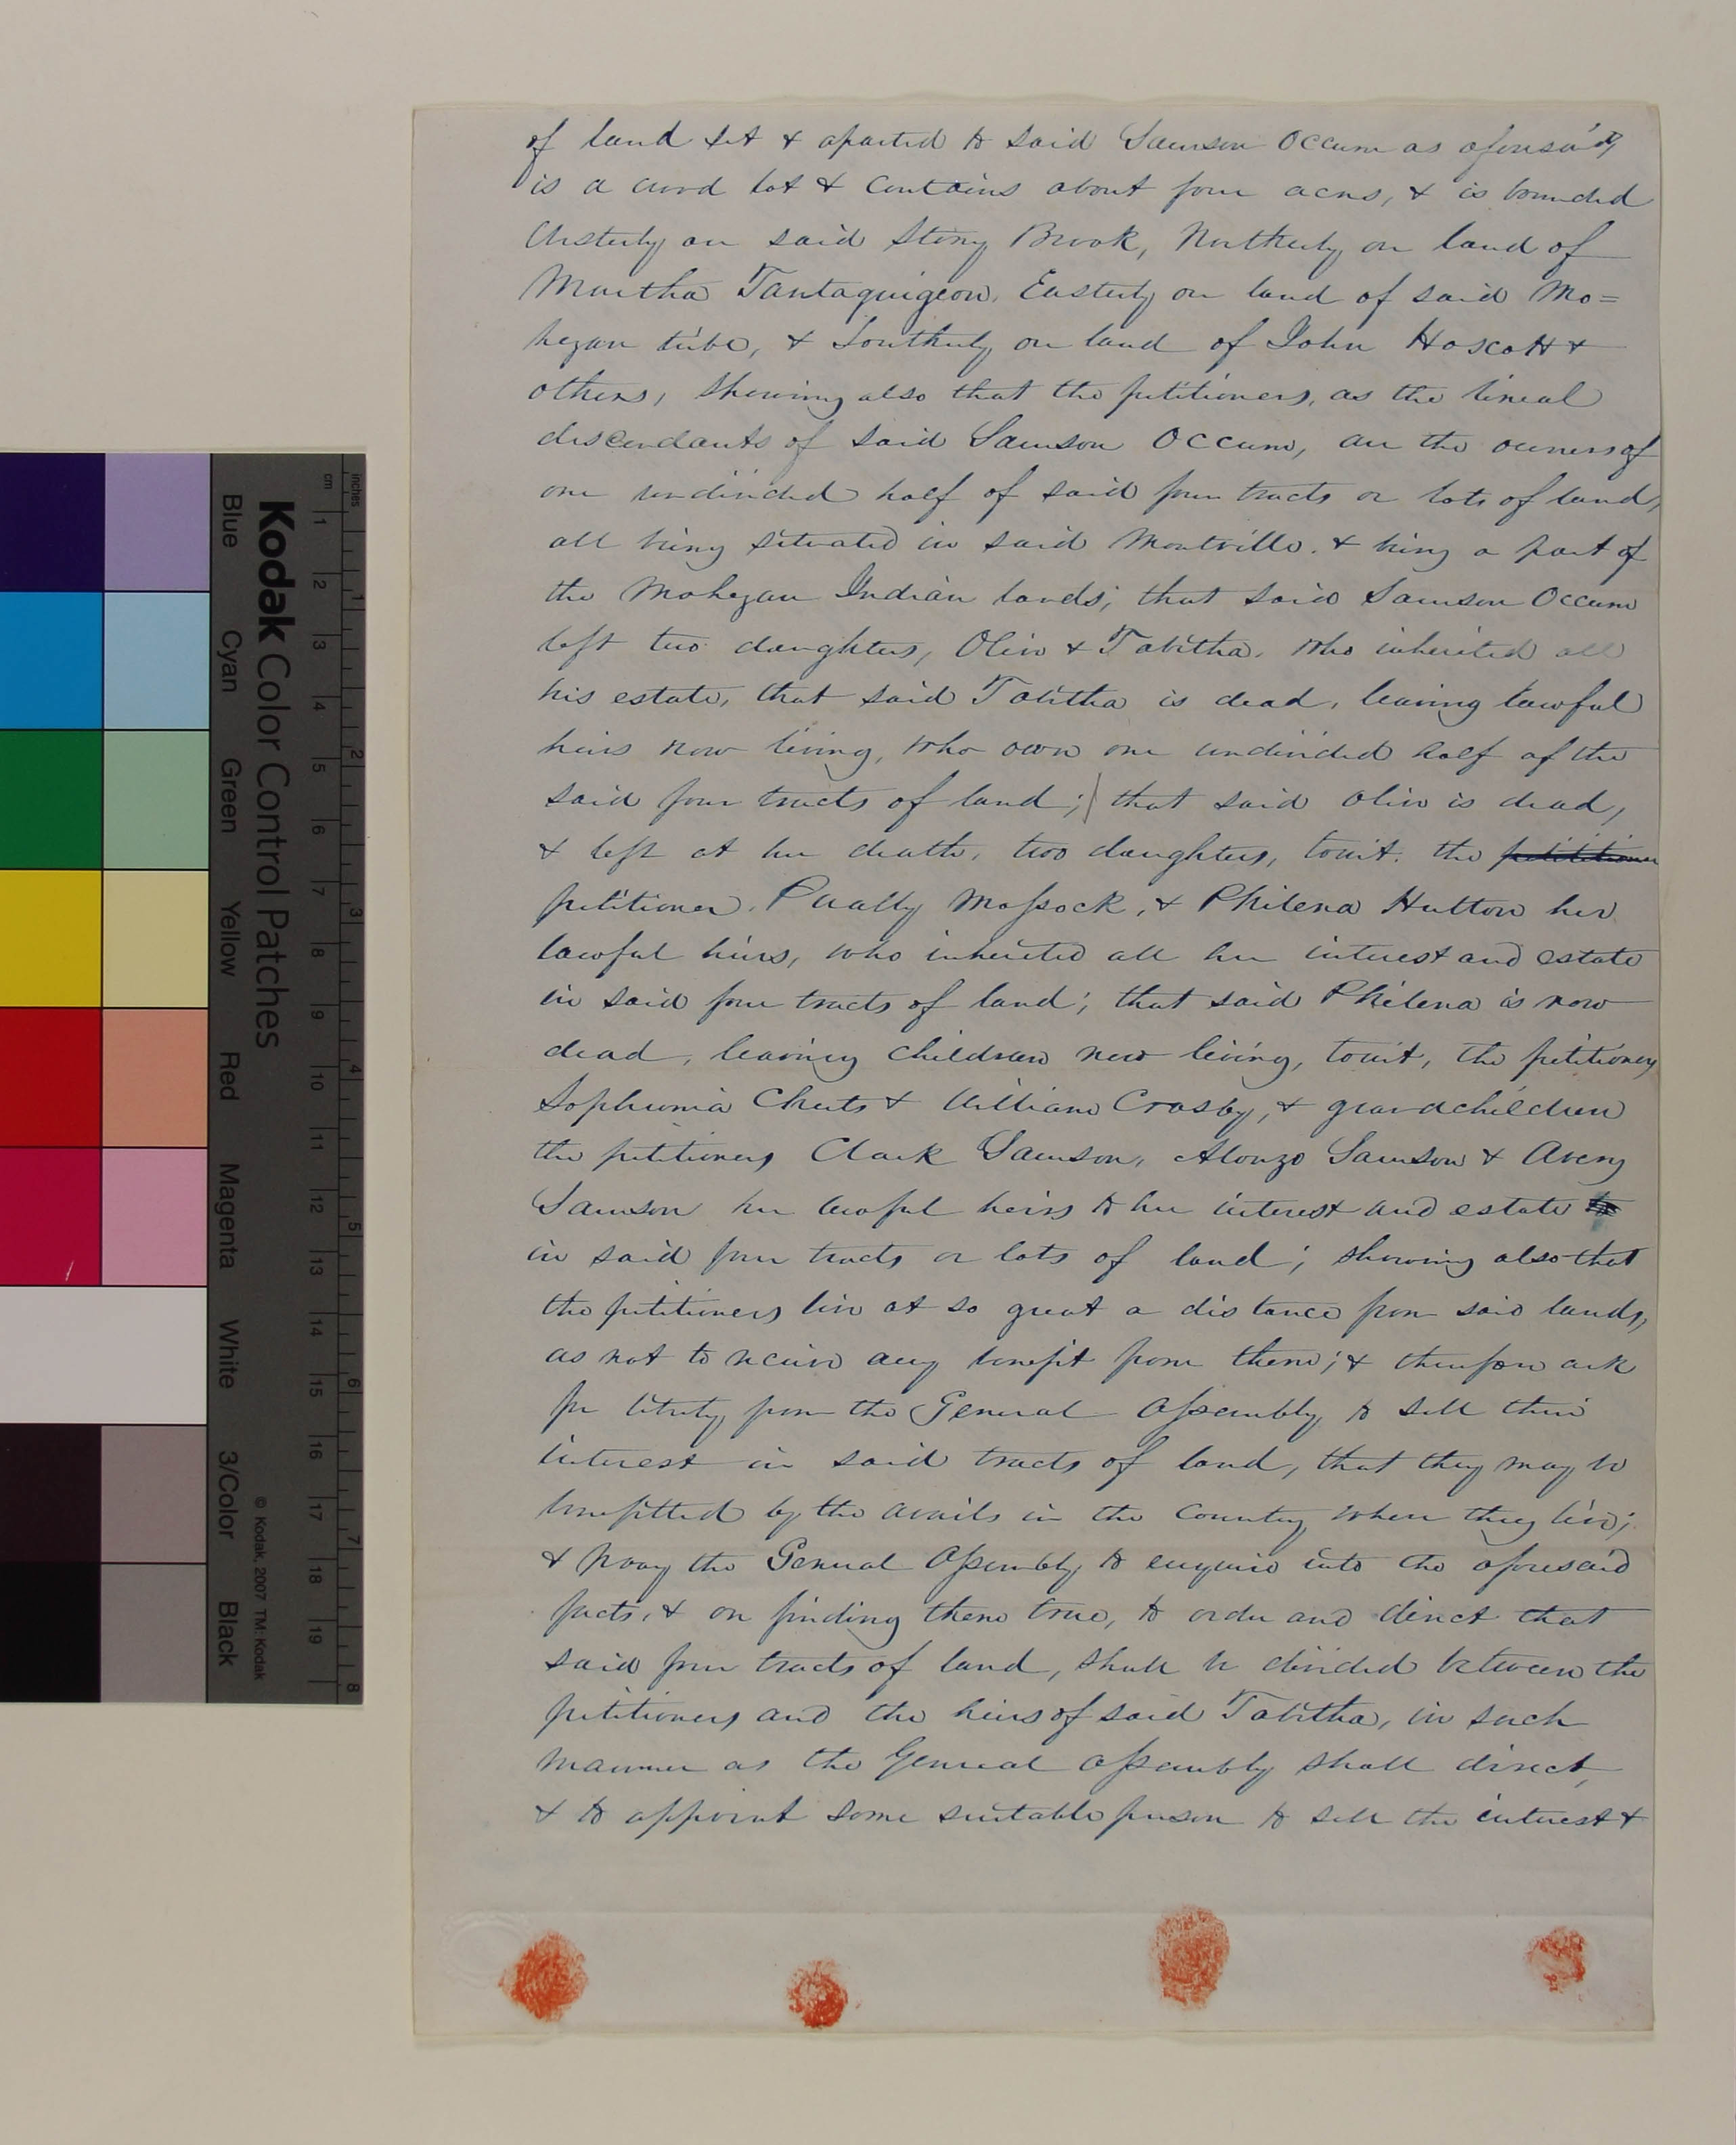 of land set & aparted to said Samson Occum as aforesaid,
is a wood lot & contains about four acres, & is bounded
Westerly on said Stony Brook, Northerly on land of
Martha Tantaquigeon, Easterly on land of said Mo=
hegan tribe, & Southerly on land of John Hoscott &
others, showing also that the petitioners, as the lineal
descendants of said Samson Occum, are the owners of
one undivided half of said four tracts or lots of land,
all being situated in said Montville, & being a part of
the Mohegan Indian lands; that said Samson Occum
left two daughters, Olive & Tabitha, who inherited all
his estate, that said Tabitha is dead, leaving lawful
heirs now living, who own one undivided half of the
said four tracts of land; that said Olive is dead,
& left at her death, two daughters, towit, the petitioner
petitioner, Pually Mossock, & Philena Hutton her
lawful heirs, who inherited all her interest and estate
in said four tracts of land; that said Philena is now
dead, leaving children now living, towit, the petitioners
Sophronia Cheets & William Crosby, & grandchildren
the petitioners Clark Samson, Alonzo Samson & Avery
Samson her lawful heirs to her interest and estate
in said four tracts or lots of land; showing also that
the petitioners live at so great a distance from said lands,
as not to receive any benefit from them; & therefore ask
for liberty from the General Assembly to sell their
interest in said tracts of land, that they may be
benefitted by the avails in the Country where they live;
& pray the General Assembly to enquire into the aforesaid
facts, & on finding them true, to order and direct that
said four tracts of land, shall be divided between the
petitioners and the heirs of said Tabitha, in such
manner as the General Assembly shall direct,
& to appoint some suitable person to sell the interest &
inches
cm
1 2 3 4 5 6 7 8
1 2 3 4 5 6 7 8 9 10 11 12 13 14 15 16 17 18 19
Kodak Color Control Patches
© Kodak, 2007 TM: Kodak
Blue Cyan Green Yellow Red Magenta White 3/Color Black